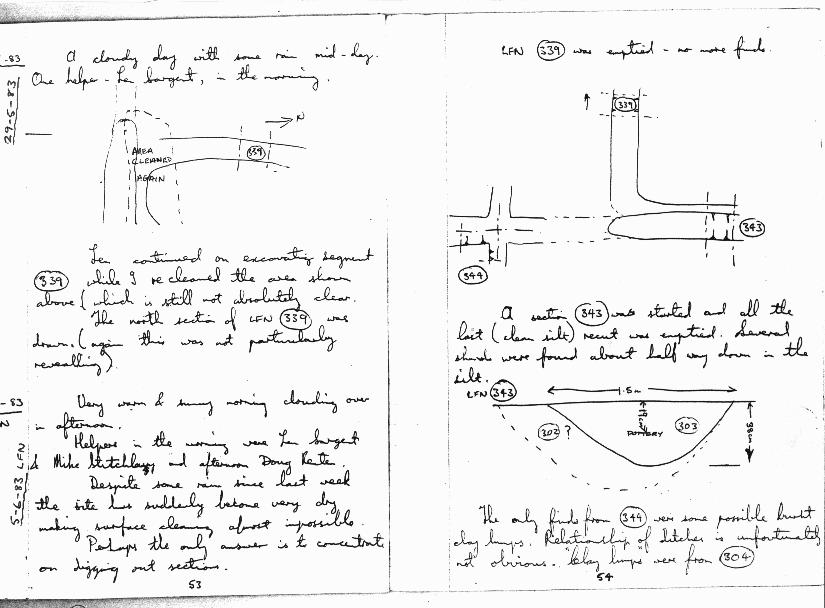 -83
A cloudy day with some rain mid-day.
One helper - Len Sargent, in the morning.
29-5-83
N
AREA
CLEANED
AGAIN
339
Len continued on excavating segment
339 while I recleaned the area shown
above (which is still not absolutely clear.
The north section of LFN 339 was
drawn. (again this was not particularly
revealling).
-83
Very warm & sunny morning clouding over
in afternoon.
5-6-83 LFN
Helpers in the morning were Len Sargent
& Mike and afternoon Doug
Despite some rain since last week
the site has suddenly become very dry
making surface cleaning almost impossible.
Perhaps the only answer is to concentrate
on digging out sections.
53
LFN 339 was emptied - no more finds.
339
343
344
A section 343 was started and all the
last (clean silt) recut was emptied. Several
sherds were found about half way down in the
silt.
LFN 343
1.5m
302 ?
POTTERY
303
The only finds from 344 were some possible burnt
clay lumps. Relationship of ditches is unfortunately
not obvious. "Clay lumps" were from 304
54